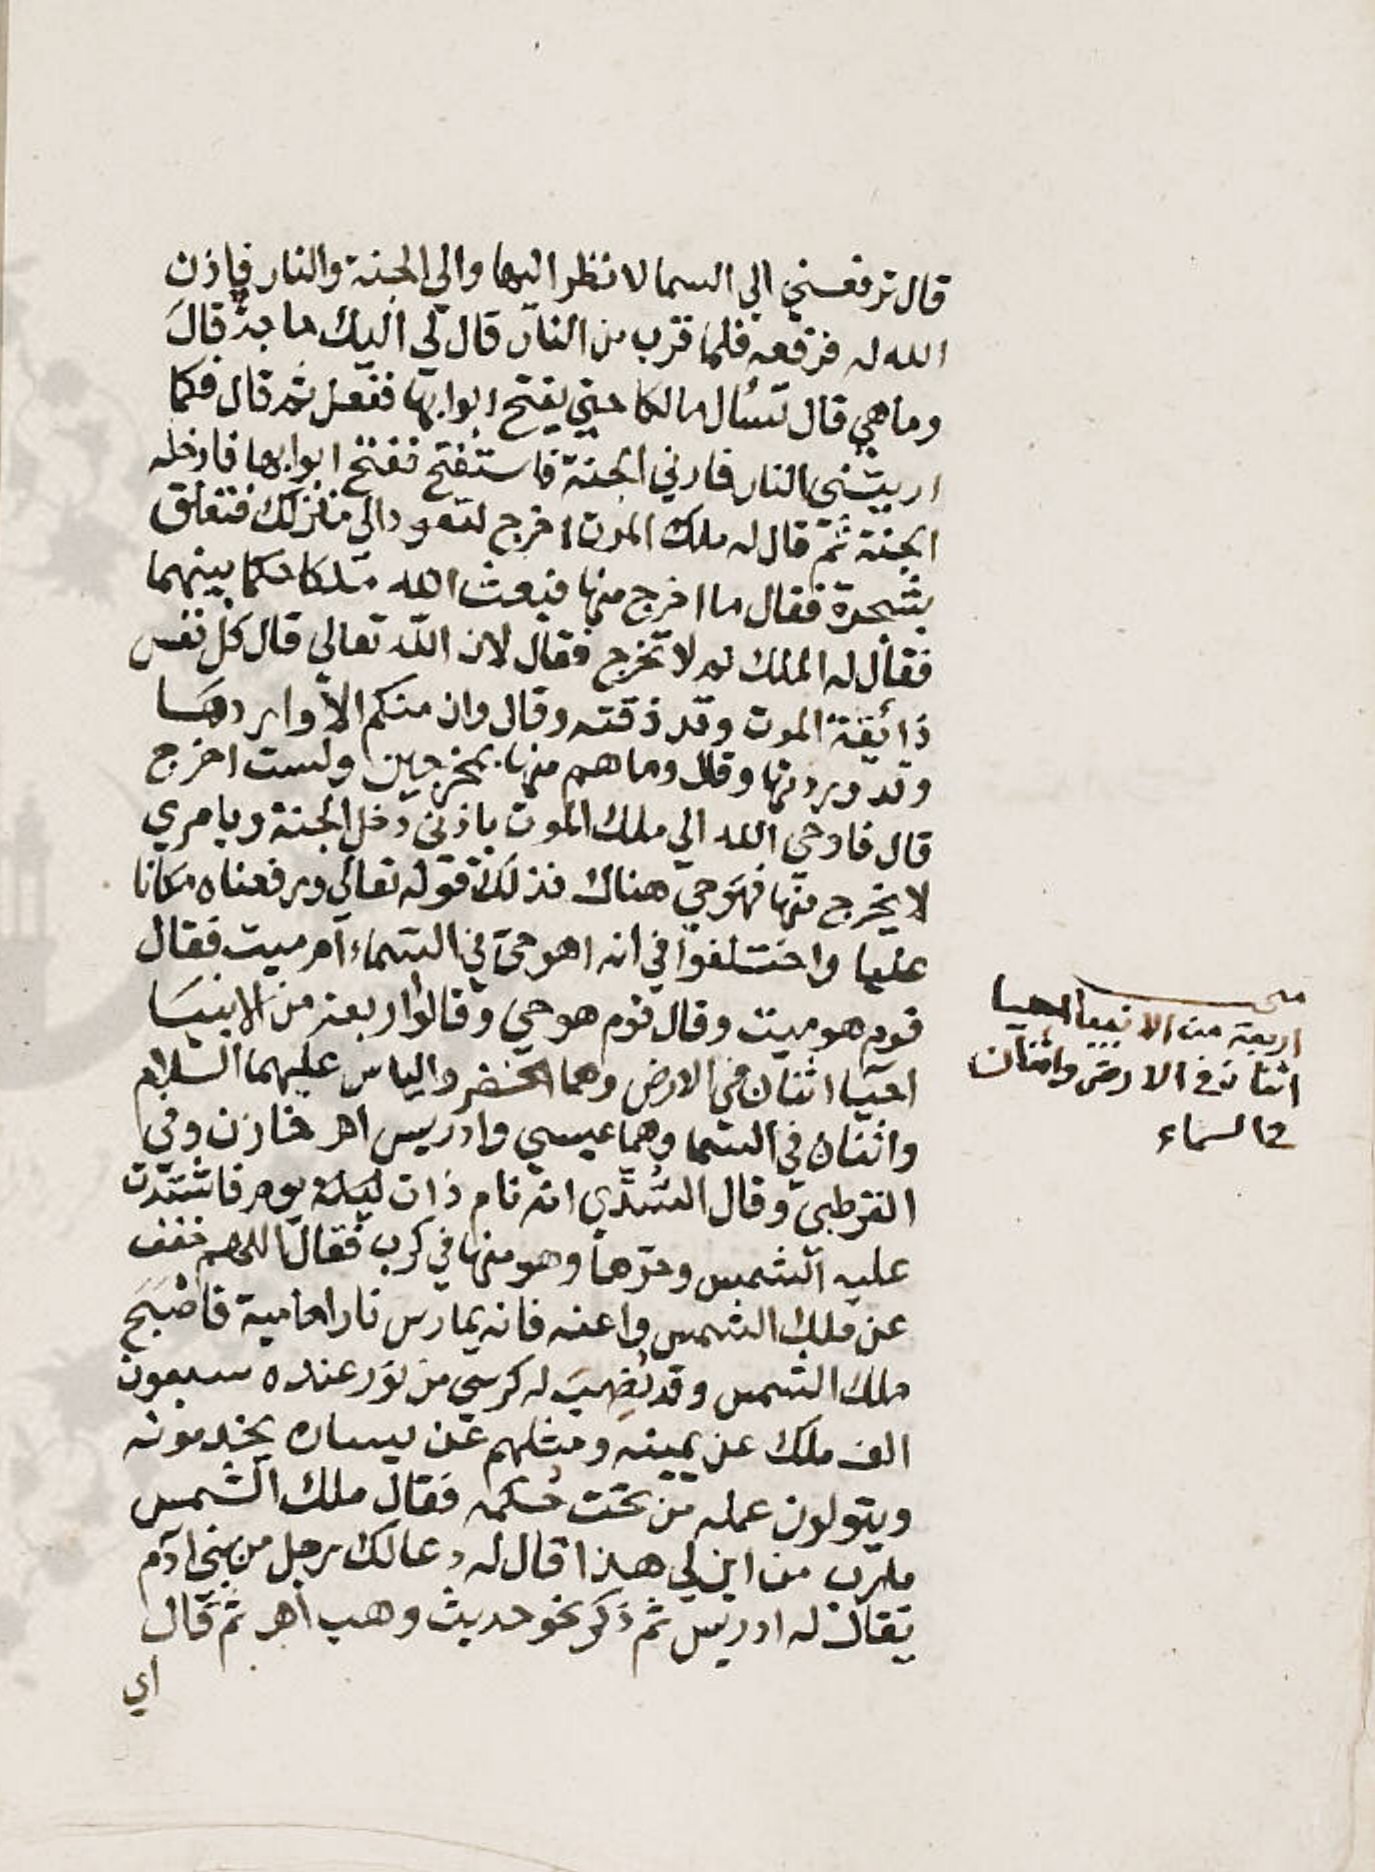 قال ترفعني الى السما لانظر اليها والى الجنة والنار فاذن
الله له فرفعه فلما قرب من النار قال لي اليك حاجة قال
وما هي قال تسأل مالكا حتى يفتح ابوابها ففعل ثم قال فكما
اريتني النار فارني الجنة فاستفتح ففتح ابوابها فادخله
الجنة ثم قال له ملك الموت اخرج لتعود الى منزلك فتعلق
بشجرة فقال ما اخرج منها فبعث الله ملكا حكما بينهما
فقال له الملك لم لا تخرج فقال لان الله تعالى قال كل نفس
ذائقة الموت وقد ذقته وقال وان منكم الا واردها
وقد وردتها وقال وما هم منها بمخرجين ولست اخرج
قال فاوحى الله الى ملك الموت باذني دخل الجنة وبامري
لا يخرج منها فهو حي هناك فذلك قوله تعالى ورفعناه مكانا
عليا واختلفوا في انه اهو حي في السماء ام ميت فقال
قوم هو ميت وقال قوم هو حي وقالوا اربعة من الانبيا
احيا اثنان في الارض وهما الخضر والياس عليهما السلام
واثنان في السما وهما عيسى وادريس اهر خازن وفي
القرطبي وقال السُّدّي انه نام ذات ليلة يوم فاشتدت
عليه الشمس وحرّها وهو منها في كرب فقال اللهم خفف
عن ملك الشمس واعنه فانه يمارس نارا حامية فاصبح
ملك الشمس وقد نُصِبَ له كرسي من نور عنده سبعون
الف ملك عن يمينه ومثلهم عن يساره يخدمونه
ويتولون عمله من تحت حُكمه فقال ملك الشمس
يارب من اين لي هذا قال له دعا لك رجل من بني ادم
يقال له ادريس ثم ذكر نحو حديث وهب اهر ثم قال
اي
اربعة من الانبيا احيا
اثنان في الارض واثنان
في السماء